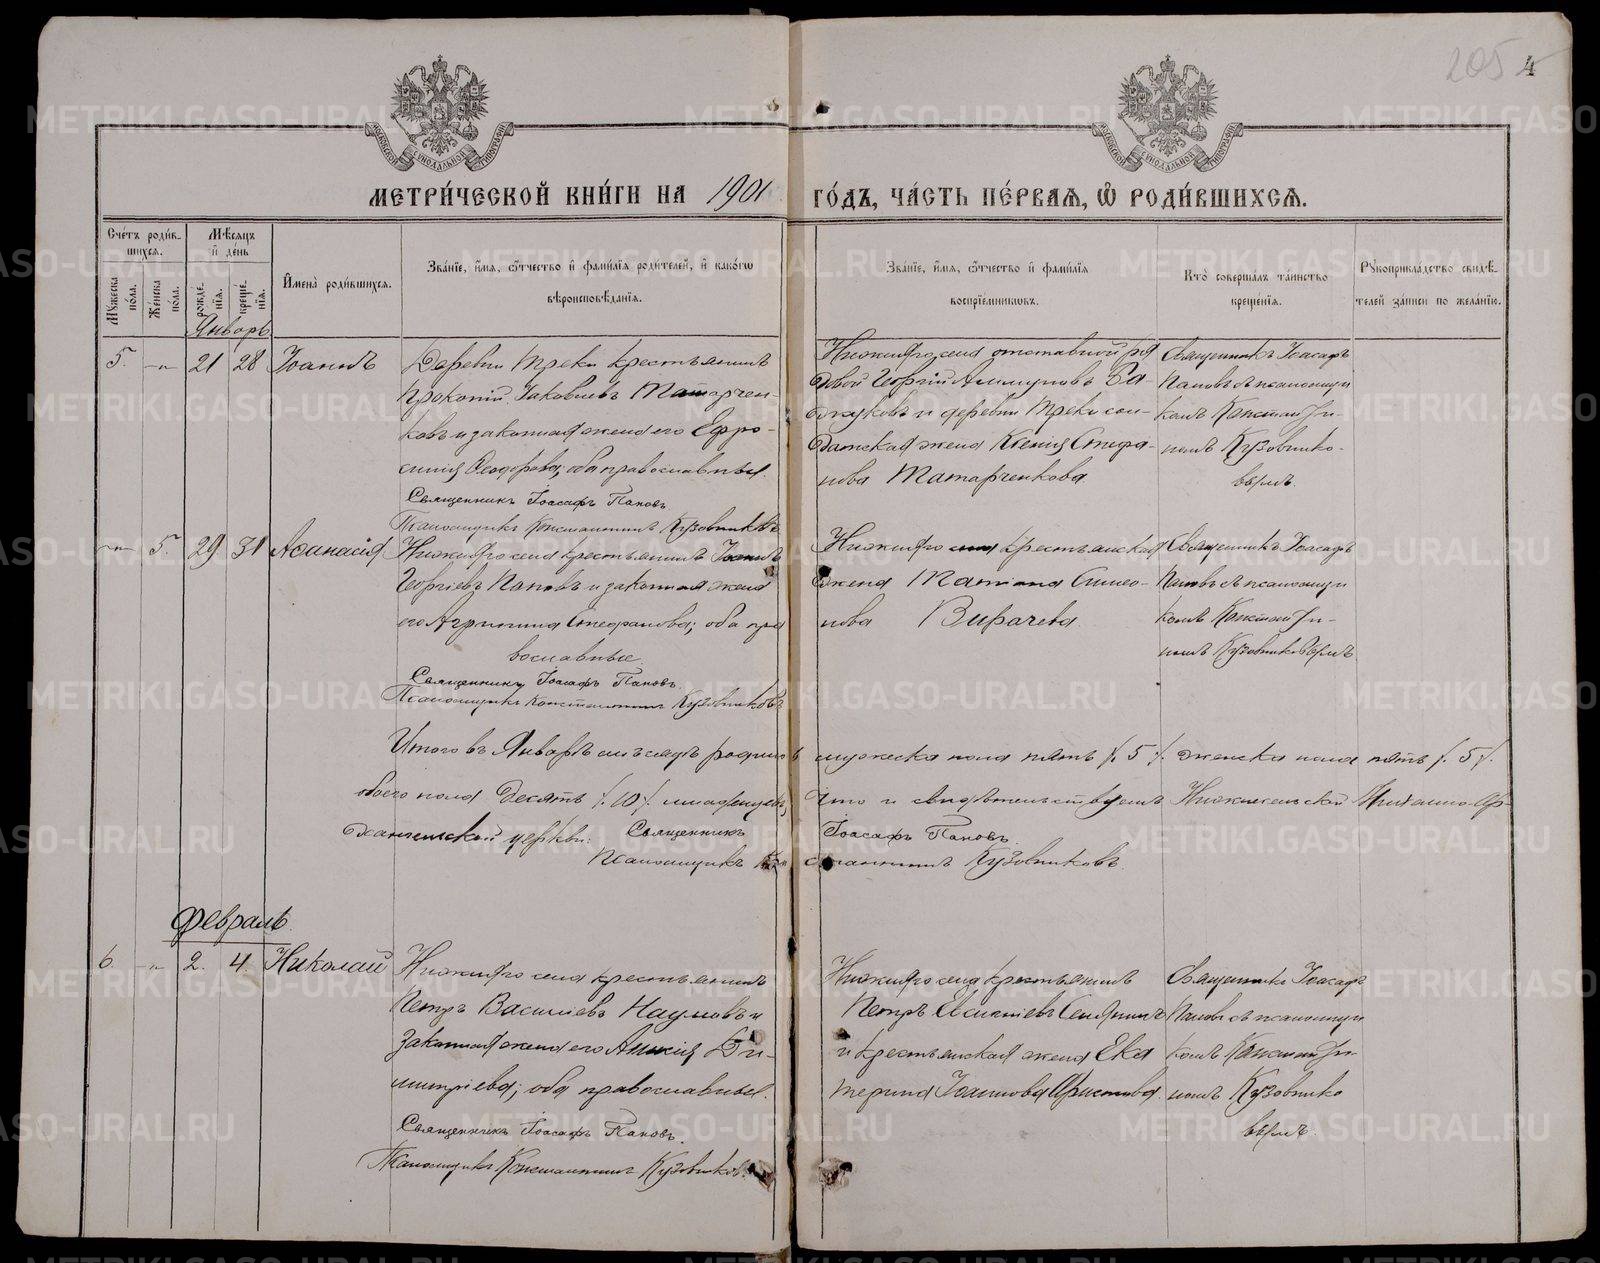 205 4
МЕТРИ́ЧЕСКОЙ КНИ́ГИ НА 1901 ГО́ДЪ, ЧА́СТЬ ПЕ́РВАЯ, Ѡ҆ РОДИ́ВШИХСЯ.
Сче́тъ роди́в-
шихся.
Му́жеска по́ла.
Же́нска по́ла.
Мѣ́сяцъ
и҆ де́нь
рожде́нїя.
креще́нїя.
И҆мена̀ роди́вшихся.
Зва́нїе, и҆́мя, ѻ҆́тчество и҆ фами́лїя роди́телей, и҆ како́гѡ
вѣроисповѣ́данїя.
Зва́нїе, и҆́мя, ѻ҆́тчество и҆ фами́лїя
воспрїе́мниковъ.
Кто̀ соверша́лъ та́инство
креще́нїя.
Рꙋкоприкла́дство свидѣ́-
телей за́писи по жела́нїю.
Январь
5. -"- 21 28 Іоаннъ
Деревни Треки крестьянинъ
Прокопій Іаковлевъ Татарчен-
ковъ и законная жена его Евфро-
синія Ѳеодорова; оба православные.
Священникъ Іоасафъ Пановъ.
Псаломщикъ Константинъ Кузовниковъ
Нижняго села отставной ря
довой Георгій
и деревни Треки сол-
датская жена Ксенія Стефа-
нова Татарченкова
Священникъ Іоасафъ
Пановъ съ псаломщи
комъ Констант-
номъ Кузовнико-
вымъ.
-"- 5. 29 31 Аѳанасія
Нижняго села крестьянинъ Іоаннъ
Георгіевъ Пановъ и законная жена
его Агрипина Стефанова; оба пра
вославные.
Священникъ Іоасафъ Пановъ.
Псаломщикъ Константинъ Кузовниковъ
Нижняго села крестьянская
жена Татіана Симео-
нова Вирачева.
Священникъ Іоасафъ
Пановъ съ псаломщи
комъ Констант-
номъ Кузовниковымъ
Итого въ Январѣ мѣсяцѣ родилось мужеска пола пять /. 5 /. женска пола пять /. 5 /.
обоего пола десять /. 10 /. младенцевъ, что и свидѣтельствуемъ Нижнесельской Михаило-Ар-
хангельской церкви: Священникъ Іоасафъ Пановъ.
Псаломщикъ Константинъ Кузовниковъ.
Февраль
6. -"- 2. 4. Николай
Нижняго села крестьянинъ
Петръ Василіевъ Наумовъ и
законная жена его Ди-
митріева; оба православные.
Священникъ Іоасафъ Пановъ.
Псаломщикъ Константинъ Кузовниковъ.
Нижняго села крестьянинъ
Петръ
и крестьянская жена Ека
терина Іоаннова
Священникъ Іоасафъ
Пановъ съ псаломщи
комъ Констант-
номъ Кузовнико
вымъ.
METRIKI.GASO-URAL.RU